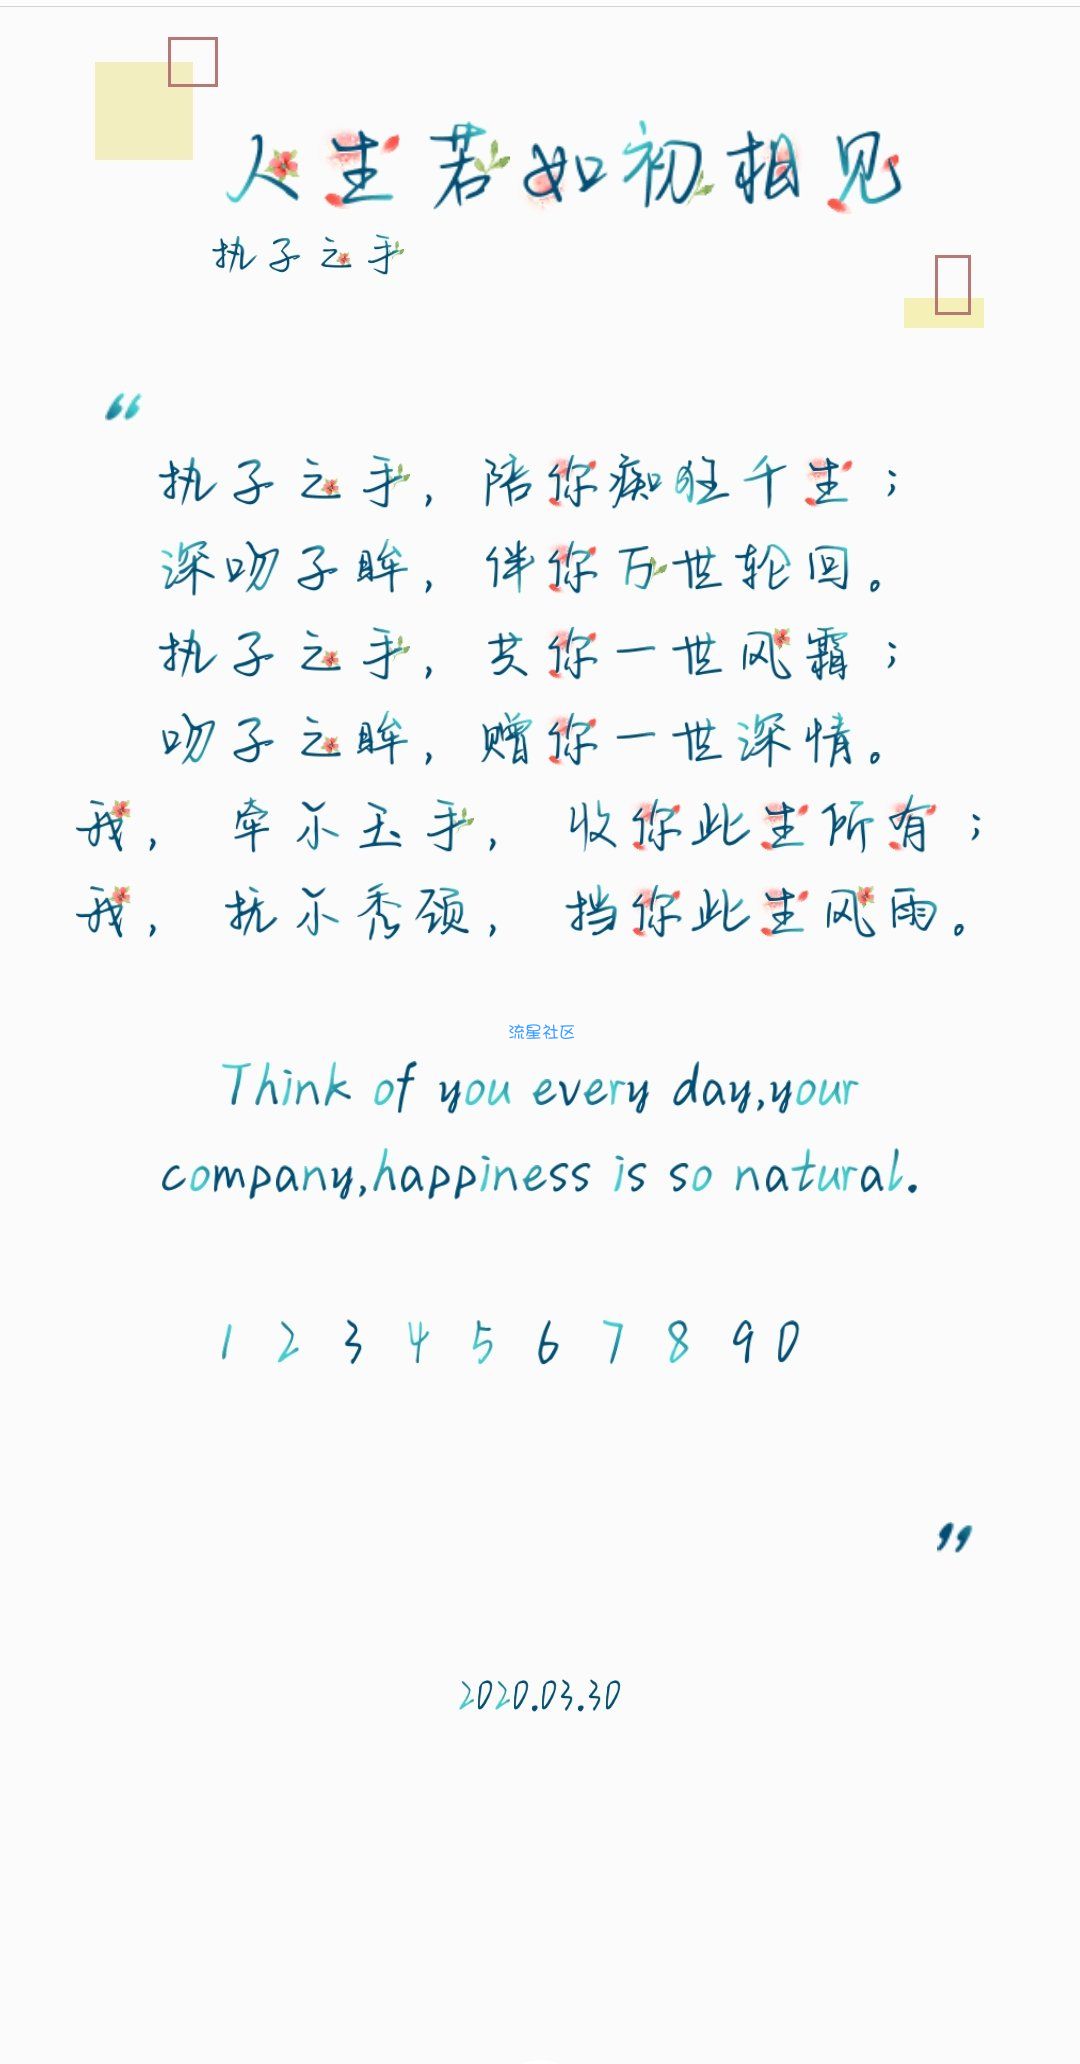 人生若如初相见
执子之手
“
执子之手，陪你痴狂千生；
深吻子眸，伴你万世轮回。
执子之手，共你一世风霜；
吻子之眸，赠你一世深情。
我， 牵尔玉手， 收你此生所有；
我， 抚尔秀颈， 挡你此生风雨。
流星社区
Think of you every day,your
company,happiness is so natural.
1 2 3 4 5 6 7 8 9 0
”
2020.03.30